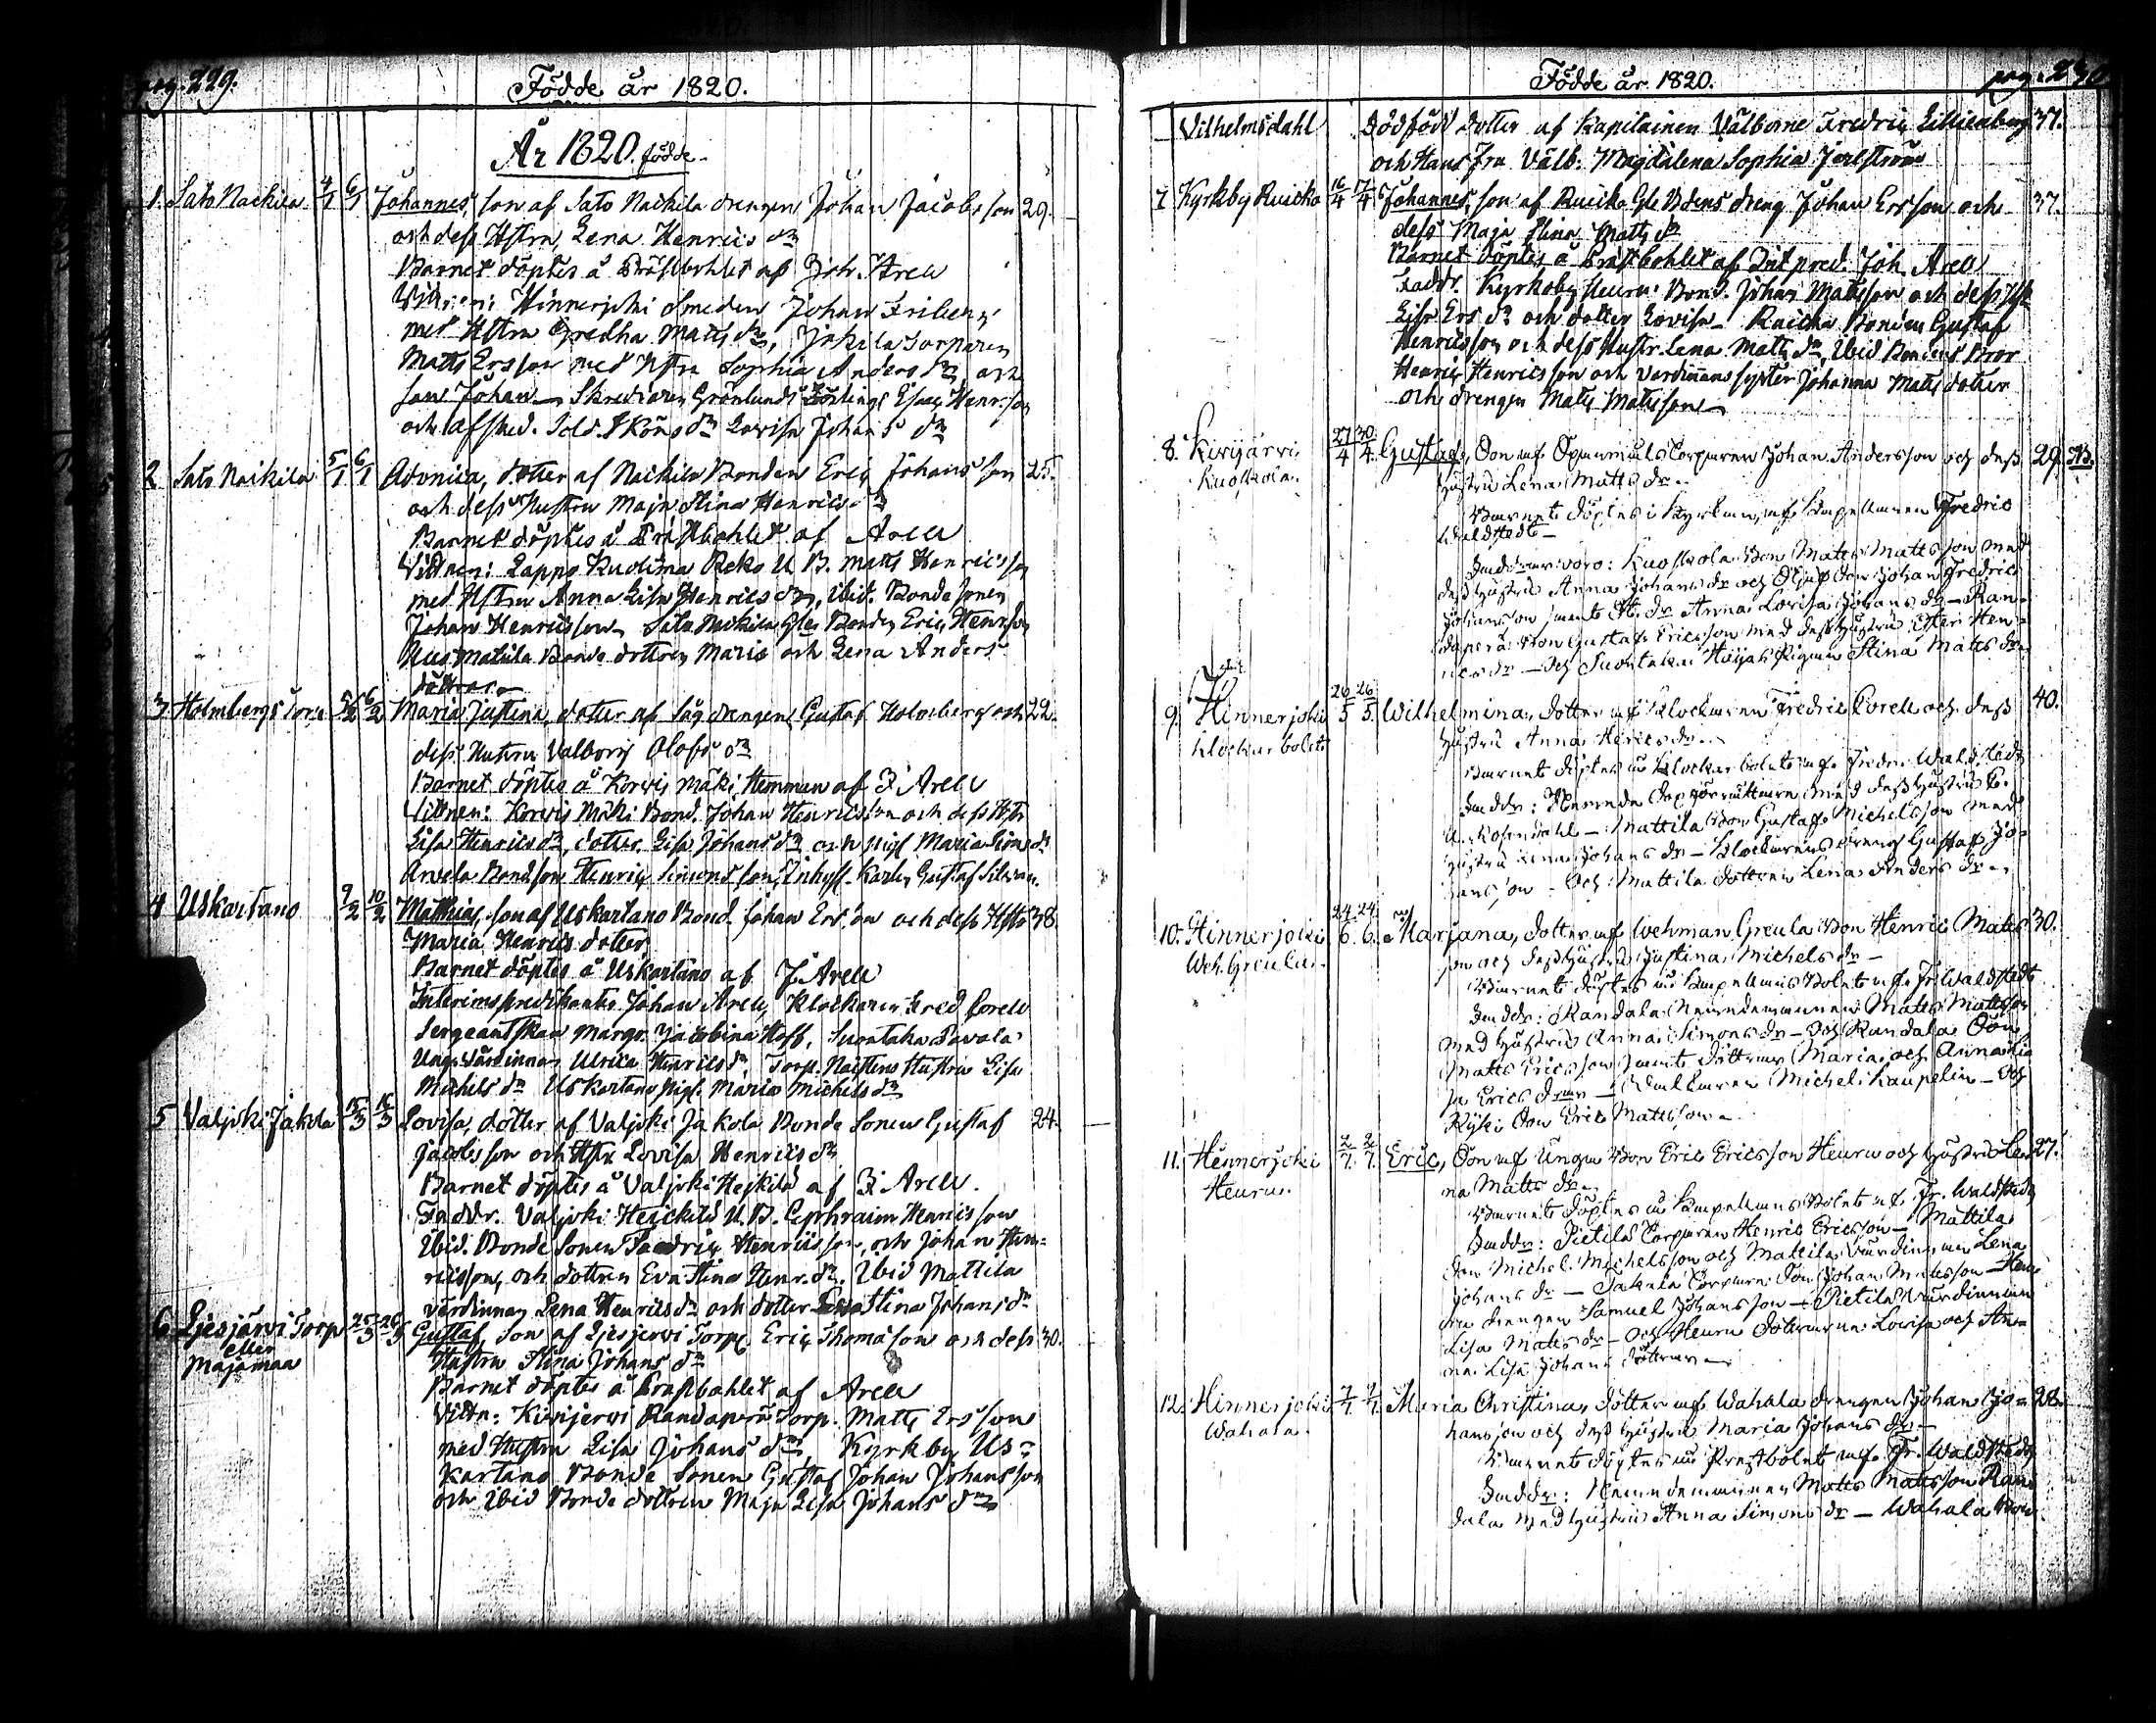 pag. 229.
Födde år 1820.
År 1820. födde
1. Sato Naickila 4/1 6/1 Johannes, son af Sato Naikila drengen Johan Jacobsson 29.
och dess Hstru Lena Henrics dr
Barnet döptes å Prästbohlet af Joh. Arell
Vittnen: Hinnerjoki Smeden Johan Friberg
med Hstru Gretha Matts dr, Jakila Torparen
Matts Ersson med Hstru Sophia Anders dr och
son Johan Skreddaren Grönlunds Henrsson
och afsked. Sold. Sköns dr Lovisa Johans dr
2 Sato Naikila 5/1 6/1 Advnica, dotter af Naikila Bonden Eric Johansson 25.
och dess Hustru Maja Stina Henrics dr
Barnet döptes å Prästbohlet af Arell
Vittnen: Lappo Kudima Reko U. B. Matts Henricsson
med Hstru Anna Lisa Henrics dr, ibid. Bonde sonen
Johan Henricsson Sato Naikila Gle Bonden Eric Henrsson
Matula Bonde dottren Maria och Lena Anders
döttrar
3 Holmbergs Torp 5/2 6/2 Maria Justina, dotter af Såg drengen Gustaf Holmberg och 22.
dess Hustru Valborg Olofs dr
Barnet döptes å Korvis Mäki Hemman af J Arell
Vittnen: Korvis Mäki Bond. Johan Henricsson och dess Hstr
Lisa Henrics dr, dotter Lisa Johans dr och pig. Maria Simons dr
Arvela Bondson Henric Simonsson, Inhys. Karlen Gustaf Silvan.
4 Uskartano 9/2 10/2 Mathias, son af Uskartano Bond Johan Ersson och dess Hstr 38.
Maria Henrics dotter
Barnet döptes å Uskartano af J Arell
Interimspredikanten Johan Arell, Klockaren Fred Corell
Sergeantskan Margr. Jacobina Hoff, Suontaka Pavola
Unga värdinnan Ulrica Henrics dr, Torp. Hustru Lisa
Michels dr Uskartano pig. Maria Michels dr
5 Valjoki Jakola 15/3 16/3 Lovisa, dotter af Valjoki Jakola Bonde Sonen Gustaf 24.
Jacobsson och Hstr. Lovisa Henrics dr
Barnet döptes å Valjoki Heikilä af J Arell.
Faddr. Valjoki Heickilä U. B. Ephraim Henricsson
Ibid. Bonde Sonen Fredric Henricsson, och Johan Hen-
ricsson, och dottren Eva Stina Henr. dr. Ibid Mattila
värdinnan Lena Henrics dr och dotter Eva Stina Johans dr
6 Ljesjärvi Torp 25/3 26/3 Gustaf, son af Ljesjervi Torp. Eric Thomasson och dess 30.
eller
Majamaa
Hustru Stina Johans dr
Barnet döptes å Prästbohlet af Arell
Vittn: Kivijervi Randaperä Torp. Matts Ersson
med Hustru Lisa Johans dr, Kyrkby Us-
kartano Bonde Sonen Gustaf Johan Johansson
och Ibid Bonde dottren Maja Lisa Johans dr
pag. 230
Födde år 1820.
Vilhelmsdahl Dödfödd dotter af Kapitainen Välborne Fredric Lillienberg 37.
och Hans Fru Välb. Magdalena Sophia
7 Kyrkby Ruicko 16/4 17/4 Johannes, son af Ruicko Gle Bdens dreng Johan Ersson och 37.
dess Maja Stina Matts dr
Barnet döptes å Prästbohlet af Int. pred. Joh. Arell
Faddr. Kyrkoby Heuru Bond. Johan Matsson och dess Hst
Lisa Ers dr och dotter Lovisa Ruicka Bonden Gustaf
Henricsson och dess Hustr. Lena Matts dr, Ibid Bondens Bror
Henric Henricsson och värdinnans syster Johanna Mats dotter
och drengen Matts Matsson
8. Kivijärvi 27/4 30/4 Gustaf, Son af Torparen Johan Andersson och dess 29. N.
Kuoskola.
hustru Lena Matts dr.
Barnet döptes i Kyrkan, af Kapellanen Fredric
Waldstedt
Faddrar voro: Kuoskola Bon Matts Mattsson med
dess hustru Anna Johans dr och Johan Fredric
Johansson samt dr Anna Lovisa Johans dr Ran-
dapera Bon Gustaf Ericsson med dess hustru Hen-
rics dr och Suontaka Pigan Stina Matts dr
9. Hinnerjoki 26/5 26/5 Wilhelmina, dotter af Klockaren Fredric Corell och dess 40.
Klockarbolet
hustru Anna Henrics dr.
Barnet döptes å Klockarbolet af Fredr. Waldstedt
Faddr: med dess hustru
Rosendahl Mattila Bon Gustaf Michelsson med
hustru Lena Johans dr Klockarens dreng Gustaf Jo-
hansson Och Mattila dottren Lena Anders dr
10. Hinnerjoki 24/6 24/6 Marjana, dotter af Wehman Greula Bon Henric Matts 30.
Weh. Greula.
son och dess hustru Justina Michels dr
Barnet döptes å Kapellans Bolet af Fr. Waldstedt
Faddr: Randala Nemndemannen Matts Mattsson
med hustru Anna Simons dr Och Randala Son
Matts Ericsson samt döttrar Maria och Anna Li-
sa Erics drar Michel Kaupelin Och
Kyhi Son Eric Mattsson
11. Hinnerjoki 2/7 2/7 Eric, Son af Unga Bon Eric Ericsson Heuru och hustru Le- 27.
Heuru.
na Matts dr
Barnet döptes å Kapellans Bolet af Fr. Waldstedt
Faddr: Pietilä Torparen Henric Ericsson Mattila
Son Michel Michelsson och Mattila Vardinnan Lena
Johans dr Jakala Torpare Son Johan Matsson Heu-
ru drengen Samuel Johansson Pietilä Vardinnan
Lisa Matts dr och Heuru dottrarna Lovisa och An-
na Lisa Johans döttrar
12. Hinnerjoki 7/7 7/7 Maria Christina, dotter af Wahala drengen Johan Jo- 28.
Wahala.
hansson och dess hustru Maria Johans dr
Barnet döptes å Prestbolet af Fr. Waldstedt
Faddr: Nemndemannen Matts Mattsson Ran-
dala med hustru Anna Simons dr Wahala Bon